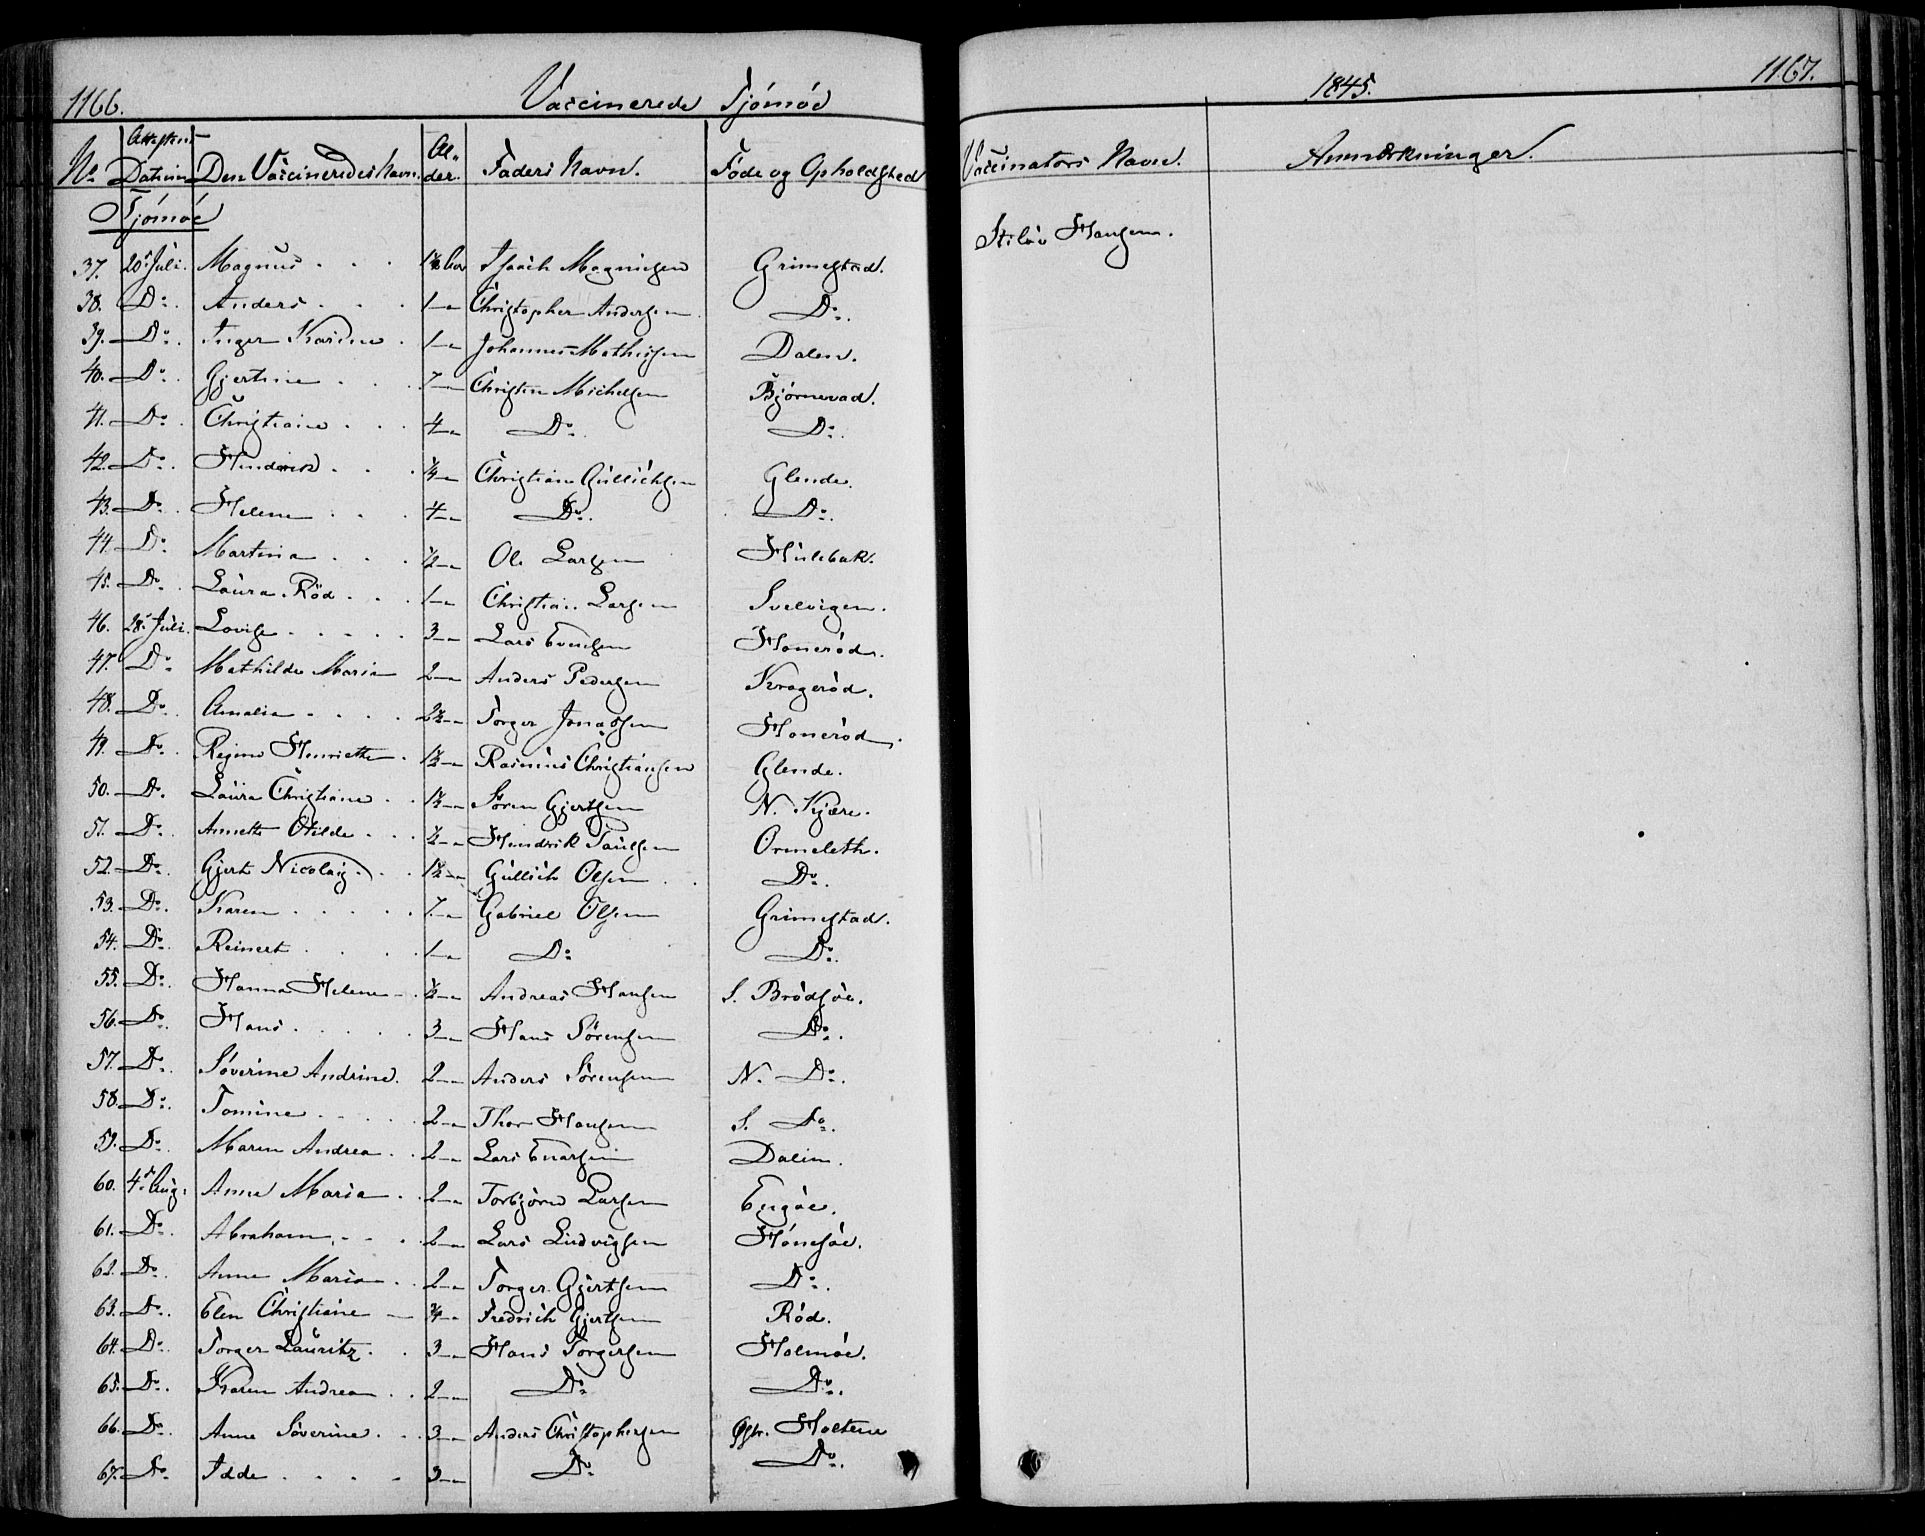 1166. Vaccinerede Tjömöe
1845. 1167.
No. Attestens Datum Den Vaccineredes Navn. Alder. Faders Navn. Føde og Opholdssted Vaccinators Navn. Anmærkninger.
Tjömöe
37. 20de Juli. Magnus . . . Isaach Magnusen Grimestad. Hansen.
38. Do. Anders . . . 1 — Christopher Andersen Do.
39. Do. Inger Karine . 1 — Johannes Mathisen Dalen.
40. Do. Gjertine . . . 7 — Christen Michelsen Bjørnevad.
41. Do. Christiane . . . 4 — Do. Do.
42. Do. Hinderik . . . ¼ — Christian Gullichsen Glende.
43. Do. Helene . . . 4 — Do. Do.
44. Do. Martina . . . ½ — Ole Larsen Hulebak.
45. Do. Laura Röd . . . 1 — Christian Larsen Svelvigen.
46. 28. Juli. Lovise . . . . . 3 — Lars Evensen Honeröd.
47. Do. Mathilde Maria 2 — Anders Pedersen Krageröd.
48. Do. Amalia . . . . 2½ — Torger Jonassen Honeröd.
49. Do. Regine Henriette . 1½ — Rasmus Christiansen Glende.
50. Do. Laura Christiane . . 1½ — Sören Gjertsen N. Kjære.
51. Do. Annette Otilde . . . ½ — Hendrik Paulsen Ormeleth.
52. Do. Gjert Nicolay . . . 1½ — Gullich Olsen Do.
53. Do. Karen . . . . . 7 — Gabriel Olsen Grimestad.
54. Do. Reinert . . . . 1 — Do. Do.
55. Do. Hanna Helene . ½ — Andreas Hansen S. Brödsöe.
56. Do. Hans . . . . . 3 — Hans Sörensen Do.
57. Do. Söverine Andrine. 2 — Anders Sörensen N. Do.
58. Do. Tomine . . . . 2 — Thor Hansen S. Do.
59. Do. Maren Andrea . . 2 — Lars Enarsen Dalen.
60. 4de Aug. Anne Maria . . 2 — Torbjörn Larsen Engöe.
61. Do. Abraham . . . 2 — Lars Ludvigsen Hönesöe.
62. Do. Anne Maria . . 2 — Torger Gjertsen Do.
63. Do. Elen Christiane — ¾ — Fredrich Gjertsen Röd.
64. Do. Torger Lauritz . . 3 — Hans Torgersen Holmöe.
65. Do. Karen Andrea . . 2 — Do. Do.
66. Do. Anne Söverine . . 3 — Anders Christophersen Holtene
67. Do. Idde . . . . 3 — Do. Do.